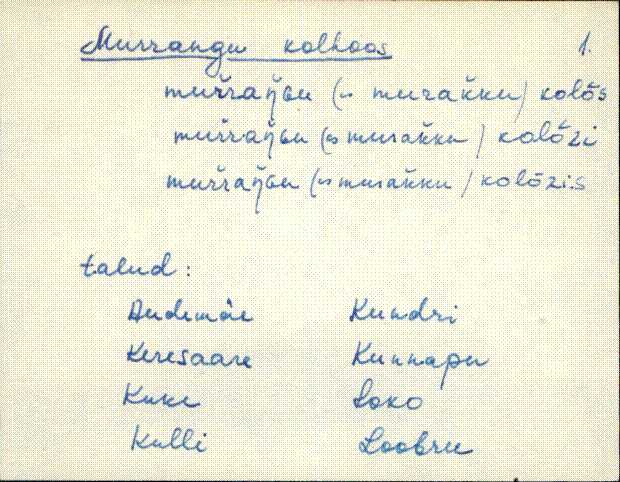 Murrangu kolhoos 1.
mur̆raŋ̆ɢu (∾ murak̆ku) kolō̆s
mur̆raŋ̆ɢu (∾ murak̆ku) kolō̆zi
mur̆raŋ̆ɢu (∾ murak̆ku) kolōzis
talud:
Audemäe Kundri
Keresaare Kunnapu
Kuke Loko
Kulli Loobru